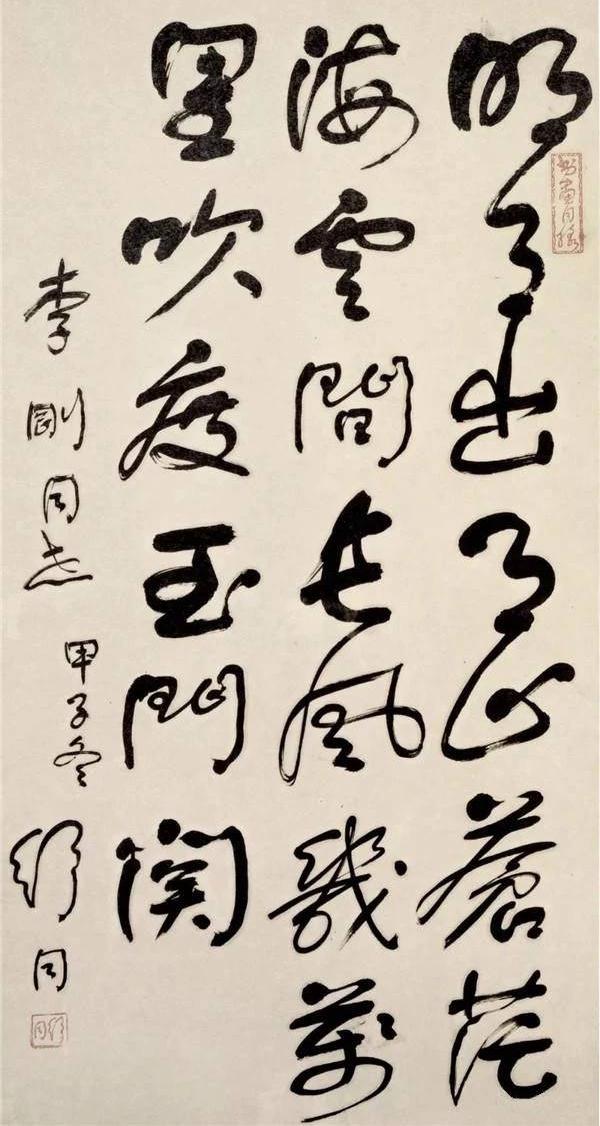 明月出天山蒼茫
海雲間長風幾萬
里吹度玉門関
李剛同志 甲子冬
舒同
舒同